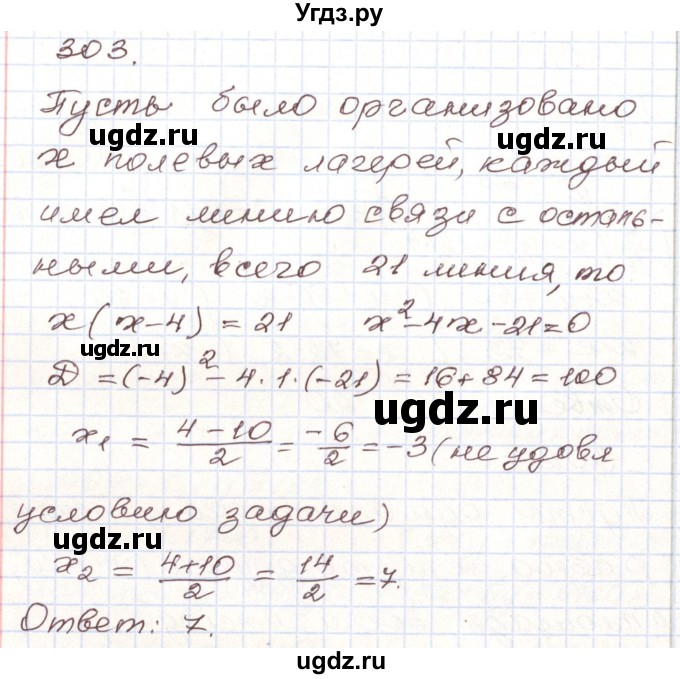 Угдз.ру
303.
Пусть было организовано
ugdz.ru ugdz.ru
x полевых лагерей, каждый
имел линию связи с осталь-
ными, всего 21 линия, то
x(x-4) = 21 x²-4x-21=0
ugdz.ru
D = (-4)² - 4·1·(-21) = 16+84 = 100
ugdz.ru
x₁ = (4-10)/2 = -6/2 = -3 (не удовл
условию задачи)
ugdz.ru
x₂ = (4+10)/2 = 14/2 = 7.
Ответ: 7.
ugdz.ru